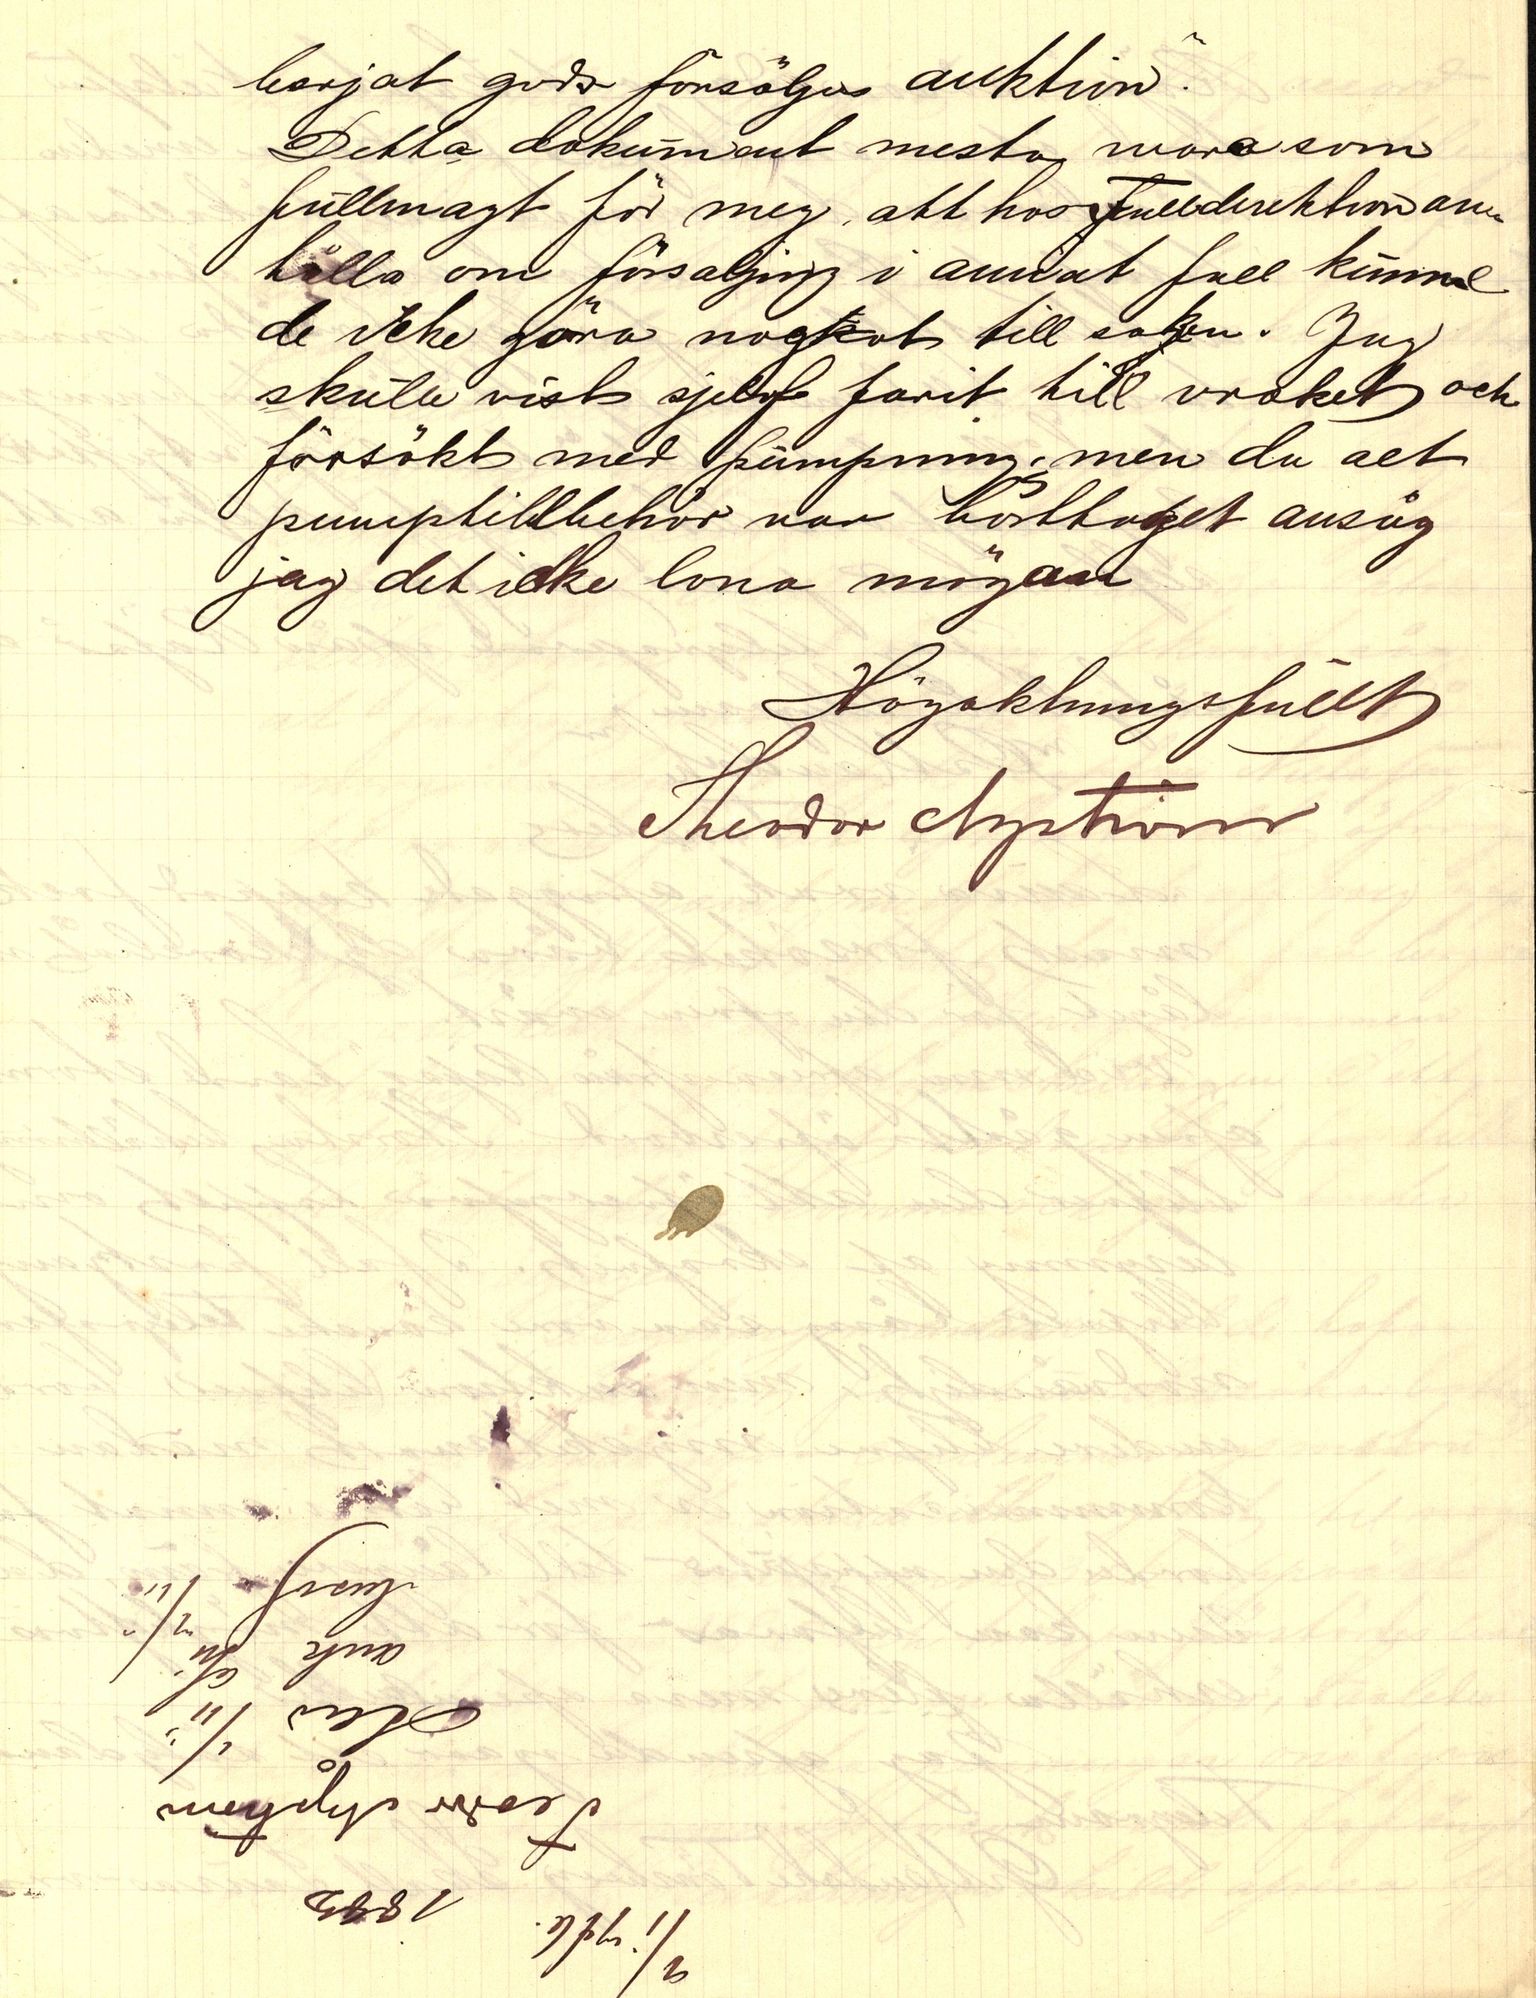 berjat gods försäljes auktion".
Detta dokument mesta vara som
fullmagt för meg, att hos Tulldirektion an-
hålla om försaljing i annat fall kunna
de icke göra nogkot till saken. Jag
skulle vist sjelf farit till vraket och
försökt med pumpning, men da alt
pumptillbehör var borttaget ansåg
jag det icke lona mögan
Högaktningsfullt
Theodor Nyström
9/11 
1892
Teodor Nyström
Hus 1/11
auk